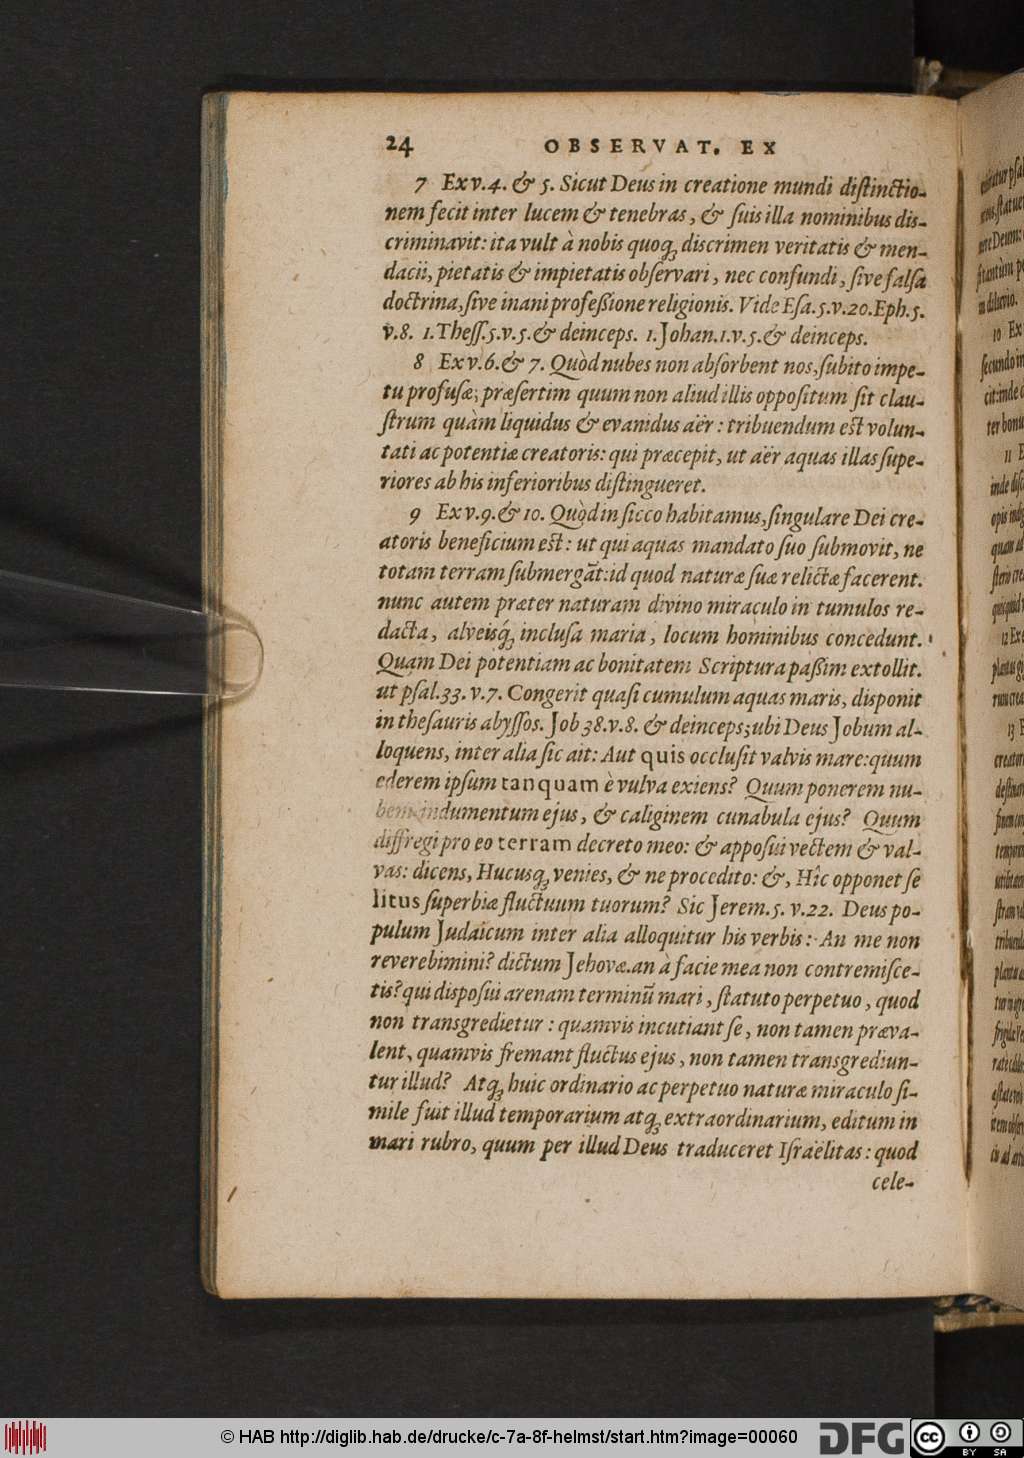 24 OBSERVAT. EX
7 Ex v.4. & 5. Sicut Deus in creatione mundi distinctio-
nem fecit inter lucem & tenebras, & suis illa nominibus dis-
criminavit: ita vult à nobis quoqꝫ discrimen veritatis & men-
dacii, pietatis & impietatis observari, nec confundi, sive falsa
doctrina, sive inani professione religionis. Vide Esa. 5. v. 20. Eph. 5.
v. 8. 1. Thess. 5. v. 5. & deinceps. 1. Johan. 1. v. 5. & deinceps.
8 Ex v. 6. & 7. Quòd nubes non absorbent nos, subito impe-
tu profusæ, præsertim quum non aliud illis oppositum sit clau-
strum quàm liquidus & evanidus aër: tribuendum est volun-
tati ac potentiæ creatoris: qui præcepit, ut aër aquas illas supe-
riores ab his inferioribus distingueret.
9 Ex v. 9. & 10. Quòd in sicco habitamus, singulare Dei cre-
atoris beneficium est: ut qui aquas mandato suo submovit, ne
totam terram submergāt: id quod naturæ suæ relictæ facerent.
nunc autem præter naturam divino miraculo in tumulos re-
dacta, alveisq́ꝫ inclusa maria, locum hominibus concedunt.
Quam Dei potentiam ac bonitatem Scriptura passim extollit.
ut psal. 33. v. 7. Congerit quasi cumulum aquas maris, disponit
in thesauris abyssos. Job 38. v. 8. & deinceps; ubi Deus Jobum al-
loquens, inter alia sic ait: Aut quis occlusit valvis mare: quum
ederem ipsum tanquam è vulva exiens? Quum ponerem nu-
bem indumentum ejus, & caliginem cunabula ejus? Quum
diffregi pro eo terram decreto meo: & apposui vectem & val-
vas: dicens, Hucusqꝫ venies, & ne procedito: &, Hîc opponet se
litus superbiæ fluctuum tuorum? Sic Jerem. 5. v. 22. Deus po-
pulum Judaicum inter alia alloquitur his verbis: An me non
reverebimini? dictum Jehovæ. an à facie mea non contremisce-
tis? qui disposui arenam terminū mari, statuto perpetuo, quod
non transgredietur: quamvis incutiant se, non tamen præva-
lent, quamvis fremant fluctus ejus, non tamen transgrediun-
tur illud? Atqꝫ huic ordinario ac perpetuo naturæ miraculo si-
mile fuit illud temporarium atqꝫ extraordinarium, editum in
mari rubro, quum per illud Deus traduceret Israëlitas: quod
cele-
© HAB http://diglib.hab.de/drucke/c-7a-8f-helmst/start.htm?image=00060
DFG
cc BY SA